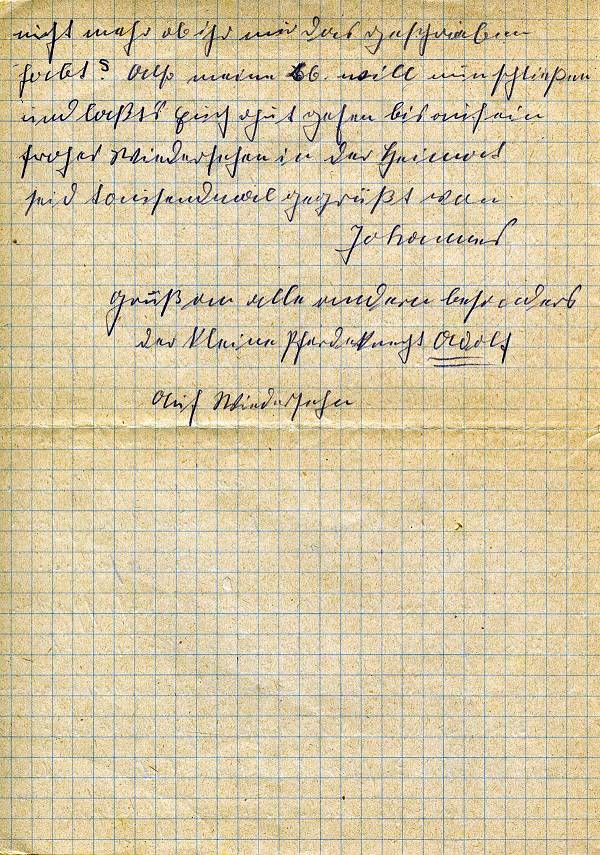 nicht mehr ob ihr mir das geschrieben
habt? Also meine Lb. will nun schließen
und laßts Euch gut gehen bis auf ein
frohes Wiedersehen in der Heimat
seid tausendmal gegrüßt von
Johannes
Grüß an alle andern besonders
der kleine Pferdeknecht Adolf
Auf Wiedersehn